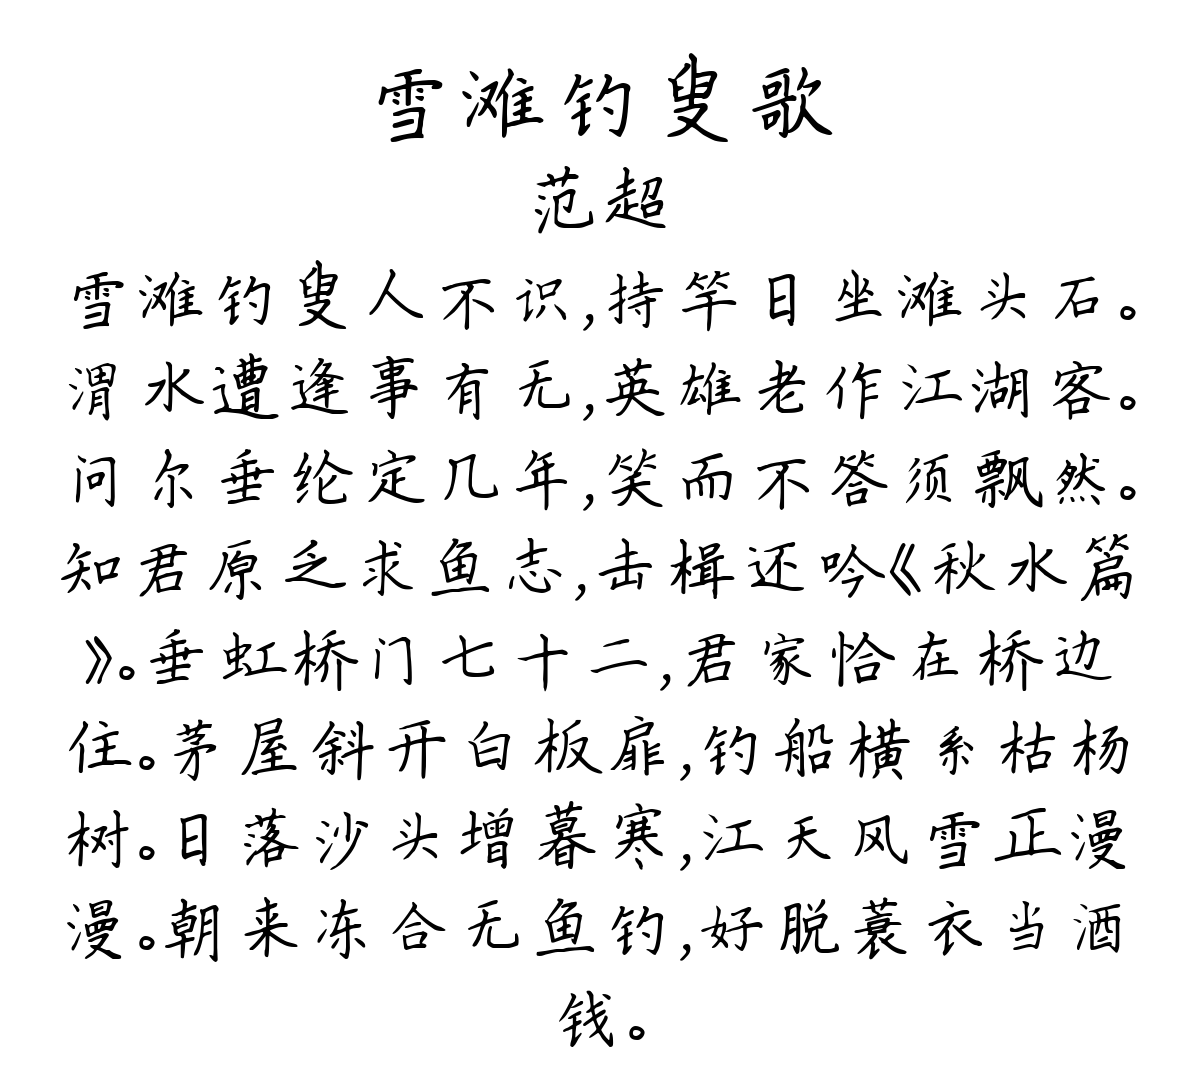 雪滩钓叟歌
范超
雪滩钓叟人不识,持竿日坐滩头石。
渭水遭逢事有无,英雄老作江湖客。
问尔垂纶定几年,笑而不答须飘然。
知君原乏求鱼志,击楫还吟《秋水篇
》。垂虹桥门七十二,君家恰在桥边
住。茅屋斜开白板扉,钓船横系枯杨
树。日落沙头增暮寒,江天风雪正漫
漫。朝来冻合无鱼钓,好脱蓑衣当酒
钱。